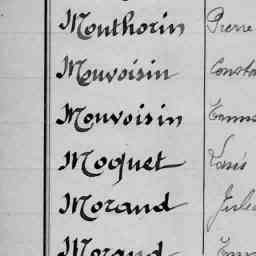 Monthorin Pierre
Mouvoisin Consta
Mouvoisin
Moquet Louis
Morand Jules
Morand